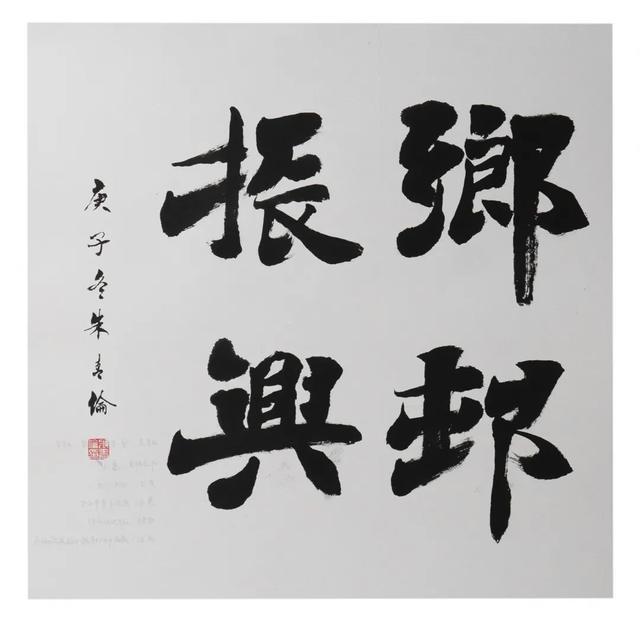 鄉邨
振興
庚子冬朱青倫